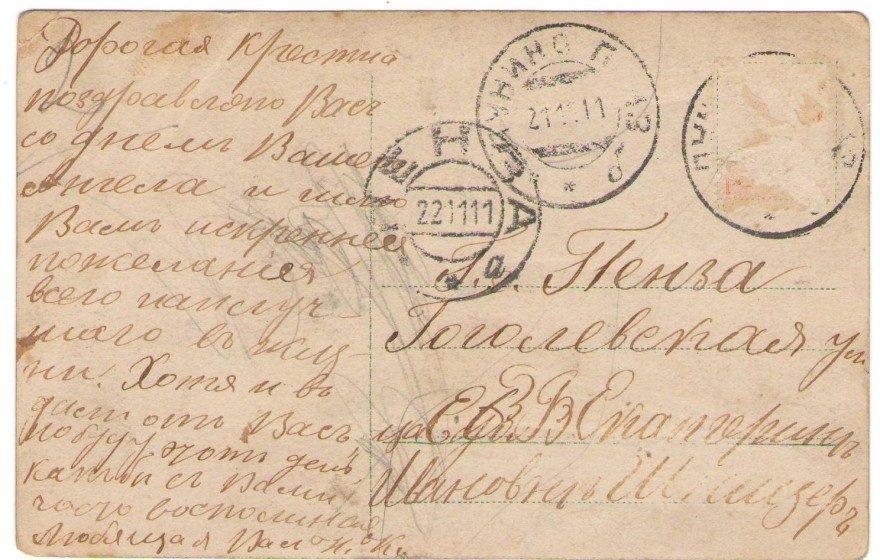 Дорогая Крестна
поздравляю Васъ
со днемъ Вашего
Ангела и шлю
Вамъ искреннея
пожелания
всего наилуч-
шаго въ жиз-
ни! Хотя и въ
дали отъ Васъ
побуду хоть день
какъ бы съ Вами
часто воспоминая
Любящая Васъ
ЛУНИНО П
21.11.11
б
ПЕНЗА
22 11 11
а
Г. Пенза
Гоголевская ул
ЕВВ Екатеринѣ
Ивановнѣ